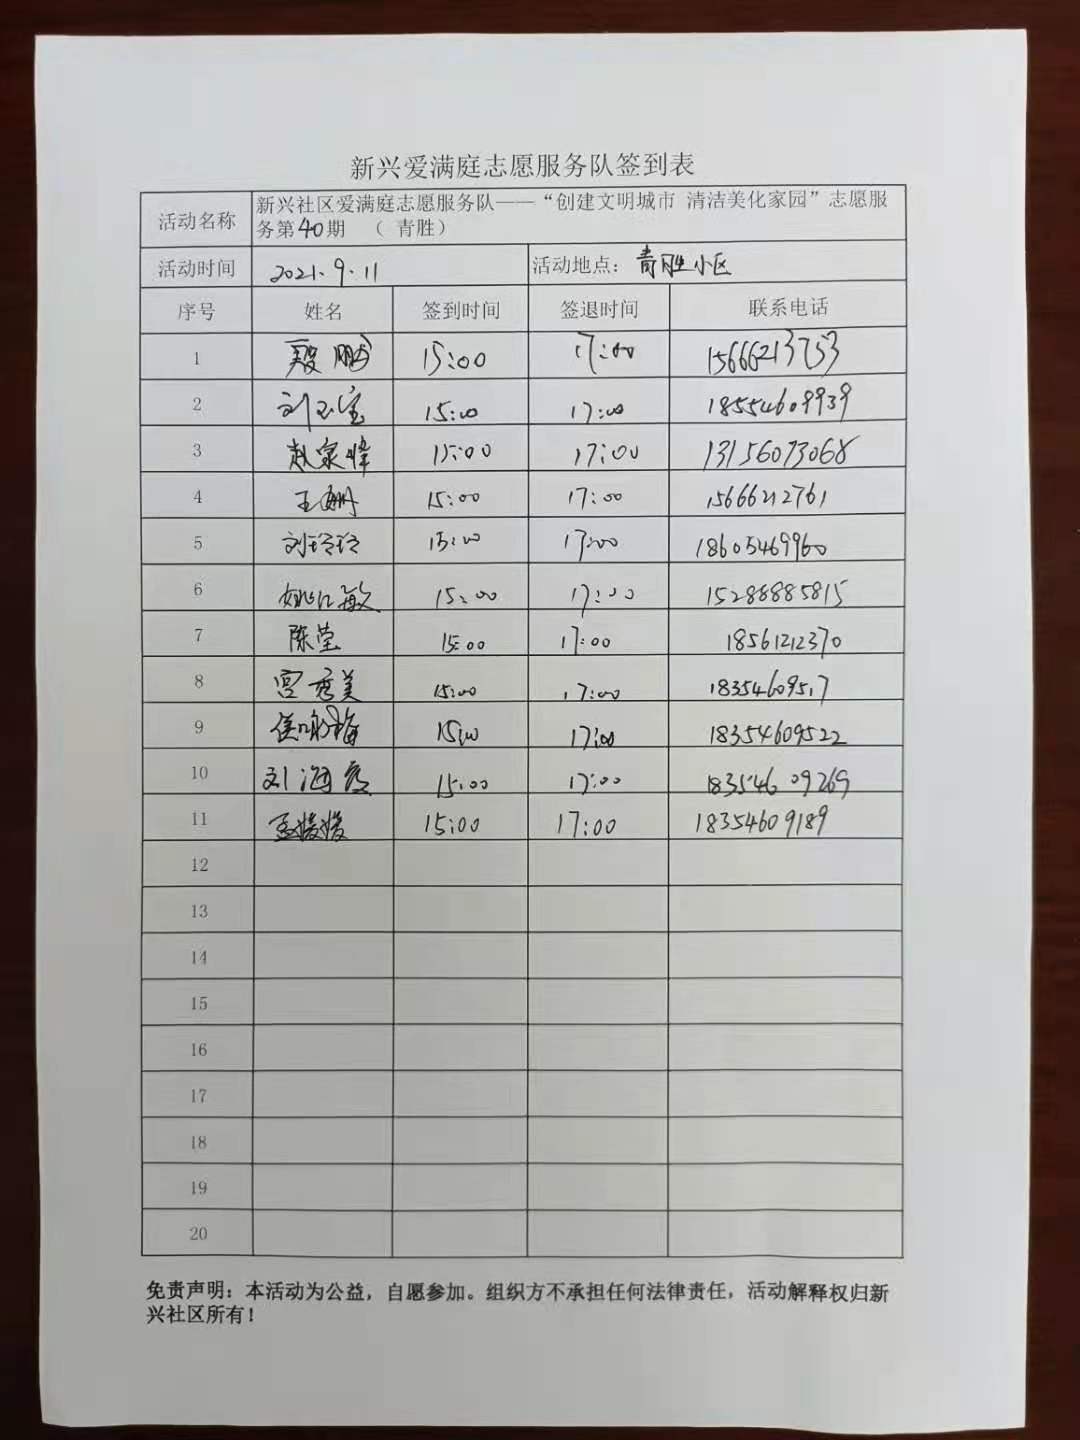 新兴爱满庭志愿服务队签到表
活动名称 新兴社区爱满庭志愿服务队——“创建文明城市 清洁美化家园”志愿服
务第40期 （ 青胜）
活动时间 2021.9.11 活动地点：青胜小区
序号 姓名 签到时间 签退时间 联系电话
1 殷鹏 15:00 17:00 15666213753
2 刘玉宝 15:00 17:00 18554609939
3 赵家峰 15:00 17:00 13156073068
4 王珊 15:00 17:00 15666212761
5 刘玲玲 15:00 17:00 18605469960
6 姚江敏 15:00 17:00 15288885815
7 陈莹 15:00 17:00 18561212370
8 宫秀美 15:00 17:00 18354609517
9 侯咏梅 15:00 17:00 18354609522
10 刘海霞 15:00 17:00 18354609269
11 孟媛媛 15:00 17:00 18354609189
12
13
14
15
16
17
18
19
20
免责声明：本活动为公益，自愿参加。组织方不承担任何法律责任，活动解释权归新
兴社区所有！